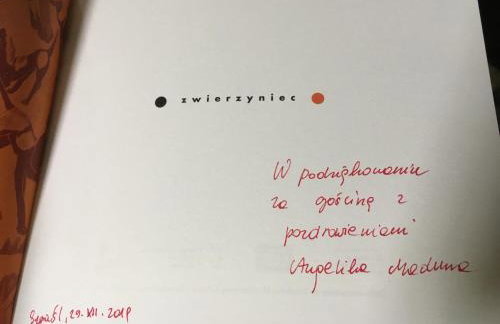 zwierzyniec
W podziękowaniu
za gościnę z
pozdrowieniami
Angelika
29.XII.2019